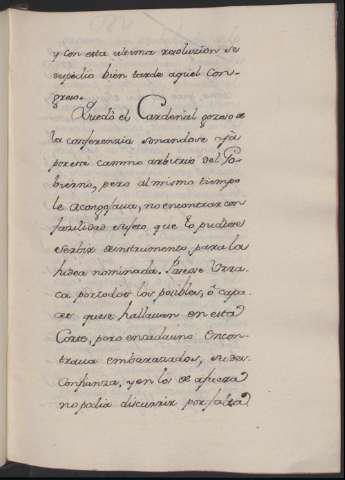 y con esta ultima resoluzion se
expidio bien tarde aquel con-
greso.
Quedó el Cardenal gozoso de
la conferenzia sonandose yá
por este camino arbitrio del Go-
bierno, pero al mismo tiempo
le acongojaua, no encontrar con
facilidad sujeto, que lo pudiese
serbir de instrumento, para la
hidea nominada. Pasose Urra-
ca por todos los posibles, ó capa-
zes que se hallauan en esta
Corte, pero en cada uno encon-
traua embarazados, su des-
confianza, y en los de afuera
no podia discurrir por falta